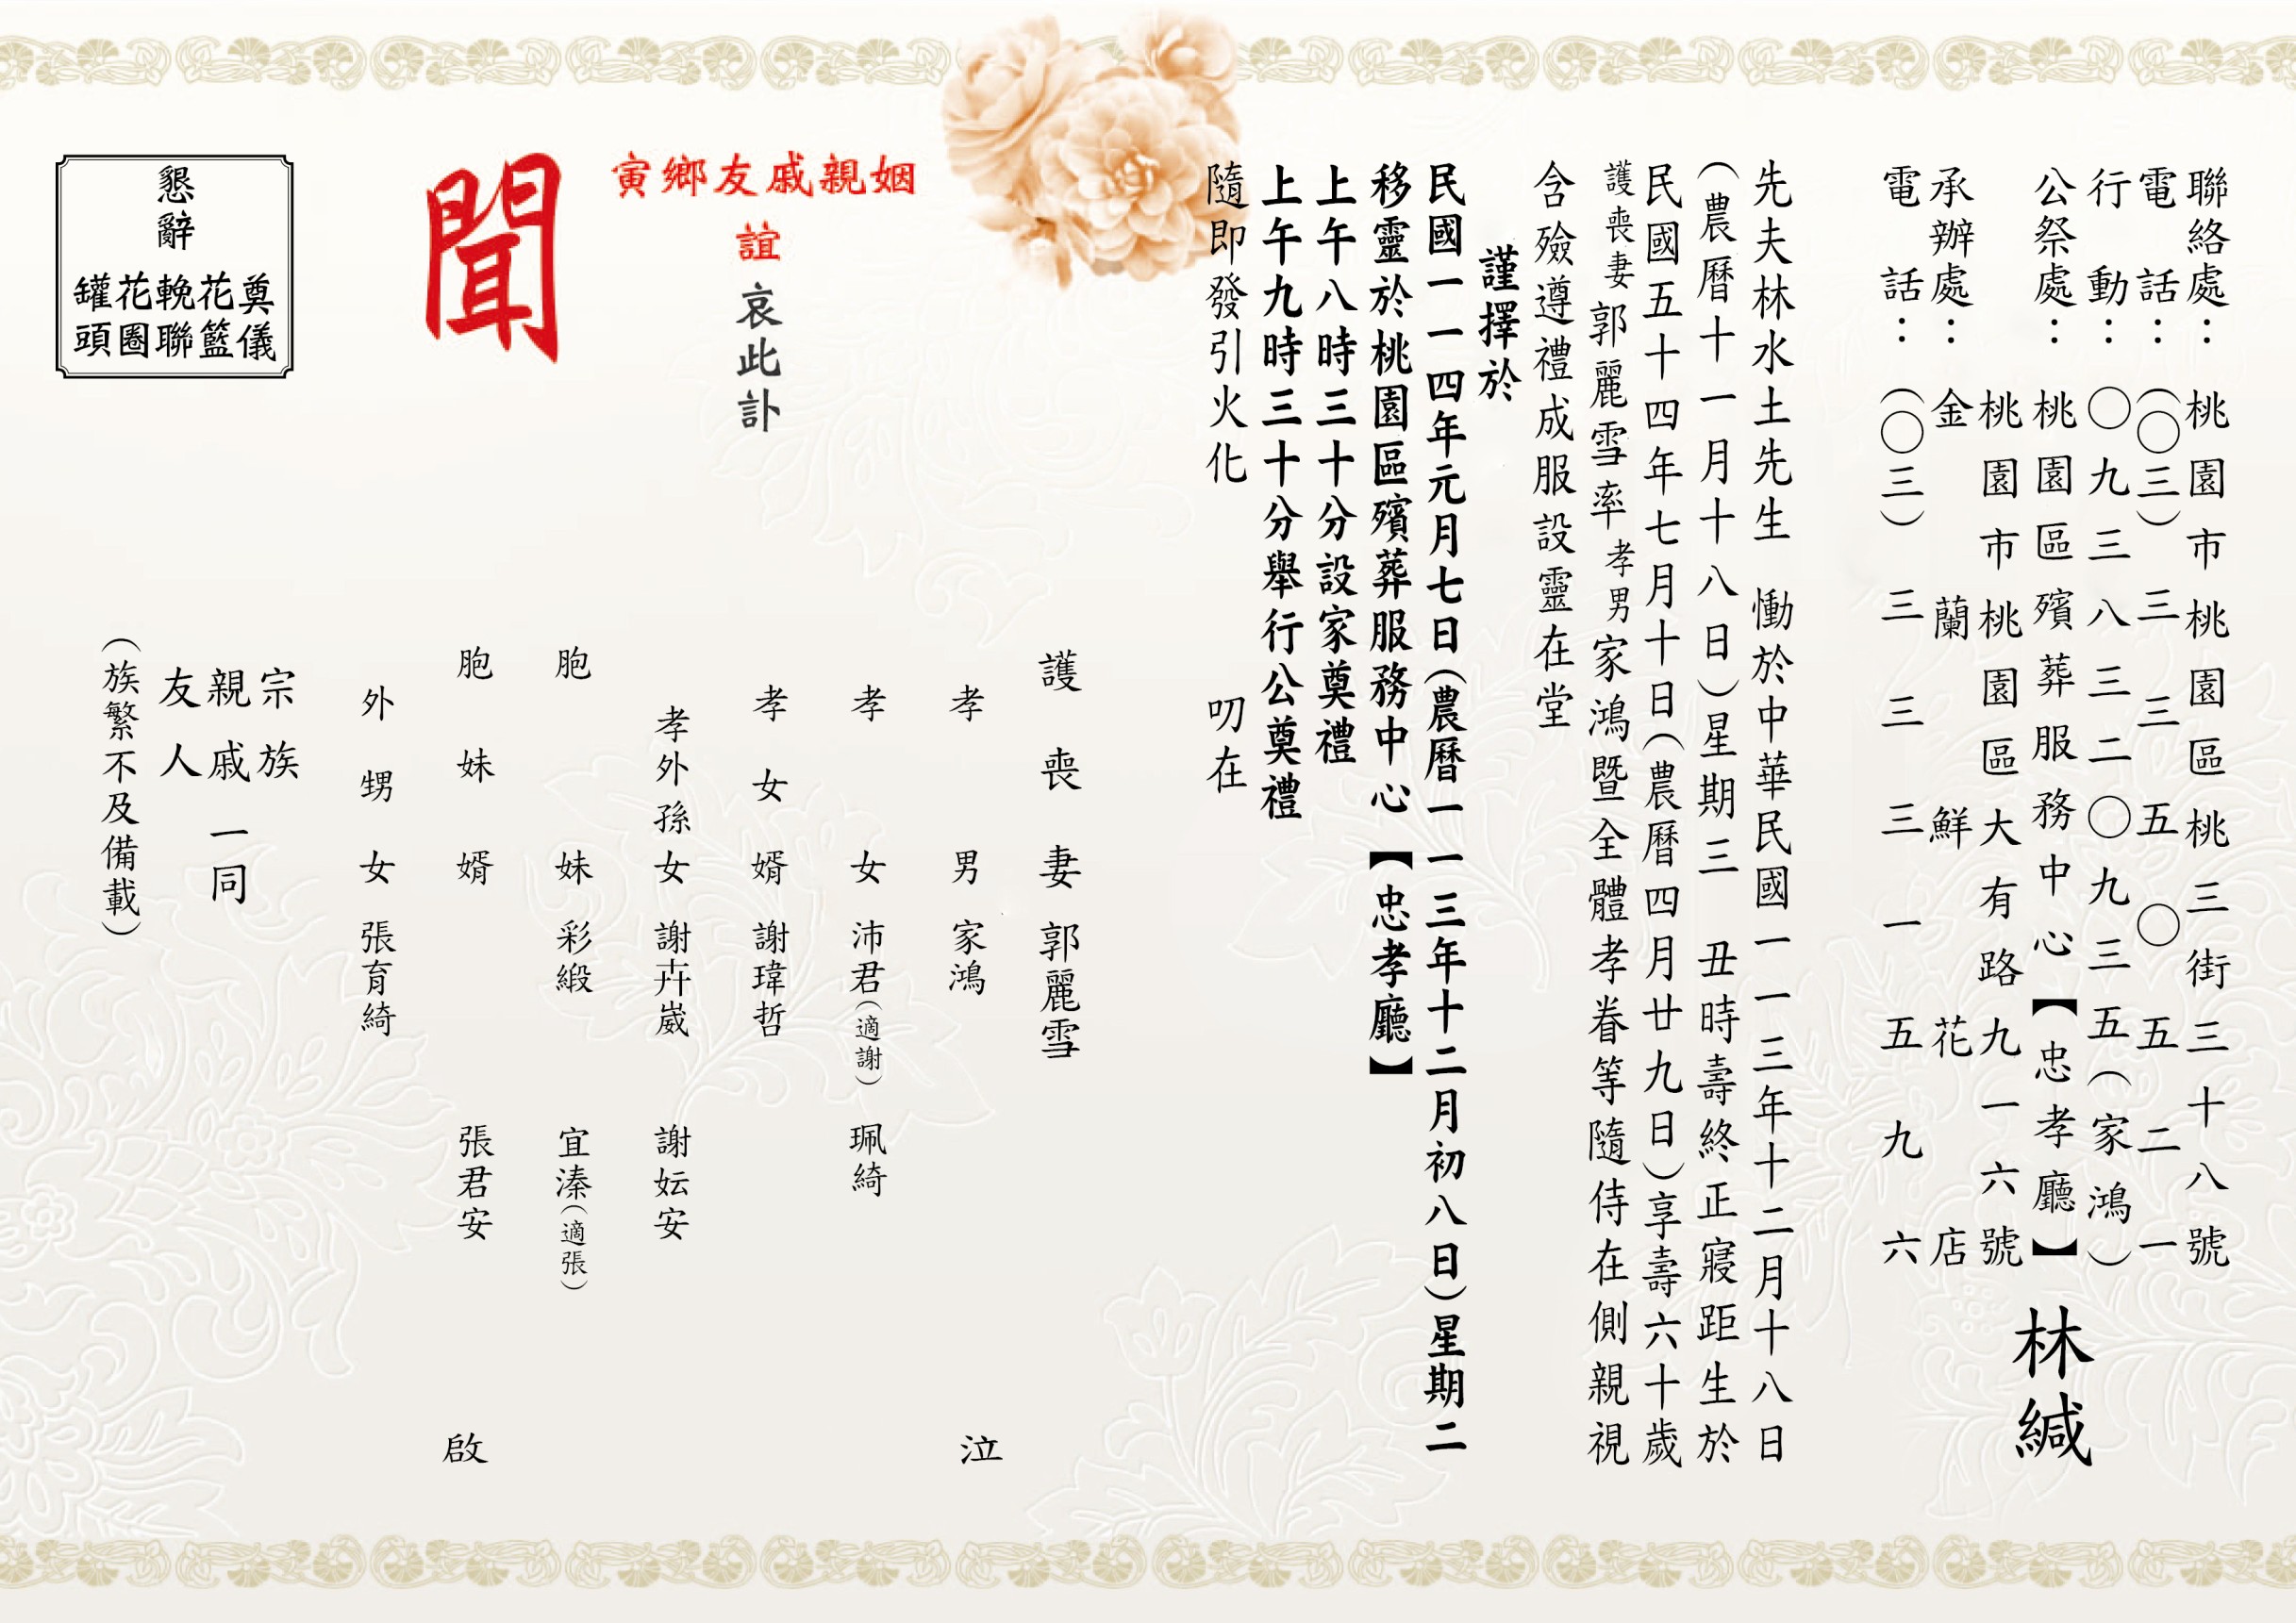 聯絡處：桃園市桃園區桃三街三十八號
電話：（〇三）三三五〇五二一
行動：〇九三八三二〇九三五（家鴻）
公祭處：桃園區殯葬服務中心【忠孝廳】
桃園市桃園區大有路九一六號
承辦處：金蘭鮮花店
電話：（〇三）三三三一五九六
林緘
先夫林水土先生　慟於中華民國一一三年十二月十八日
（農曆十一月十八日）星期三　丑時壽終正寢距生於
民國五十四年七月十日（農曆四月廿九日）享壽六十歲
護喪妻郭麗雪率孝男家鴻暨全體孝眷等隨侍在側親視
含殮遵禮成服設靈在堂
謹擇於
民國一一四年元月七日（農曆一一三年十二月初八日）星期二
移靈於桃園區殯葬服務中心【忠孝廳】
上午八時三十分設家奠禮
上午九時三十分舉行公奠禮
隨即發引火化　叨在
姻親戚友鄉寅
誼哀此訃
聞
護喪妻郭麗雪
孝男家鴻
孝女沛君（適謝）　珮綺
孝女婿謝瑋哲
孝外孫女謝卉崴　謝妘安
胞妹彩緞　宜溱（適張）
胞妹婿　張君安
外甥女張育綺
泣
啟
宗族
親戚一同
友人
（族繁不及備載）
懇辭
奠儀
花籃
輓聯
花圈
罐頭